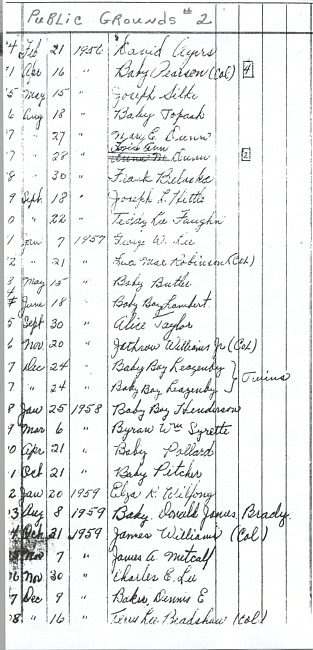 PUBLIC GROUNDS #2
4 Feb 21 1956 David Ayers
1 Apr 16 " Baby Pearson (Col) 4
5 May 15 " Joseph Silke
6 Aug 18 " Baby Topash
7 " 27 " Mary E. Dunn
7 " 28 " Ann Dunn 2
8 " 30 " Frank Belaska
9 Sept. 18 " Joseph L. Hitts
0 " 22 " Teddy Lee Faughn
1 Jan 7 1957 George W. Lee
2 " 21 " Mae Robinson (Col)
3 May 15 " Baby Butke
4 June 18 " Baby Boy Lambert
5 Sept 30 " Alice Taylor
6 Nov. 20 " Jethrow Williams Jr (Col)
7 Dec 24 " Baby Boy Leazenby
7 " 24 " Baby Boy Leazenby } Twins
8 Jan 25 1958 Baby Boy Henderson
9 Mar 6 " Byran Wm Syrette
0 Apr 21 " Baby Pollard
1 Oct 21 " Baby Pitcher
2 Jan 20 1959 Elza K. Wilfong
3 Aug 8 1959 Baby, Donald James Brady
4 Oct 21 1959 James Williams (Col)
Nov 7 " James A. Metcalf
6 Nov 30 " Charles E. Lee
7 Dec 9 " Baker, Dennis E
8. " 16 " Terry Lee Bradshaw (Col)